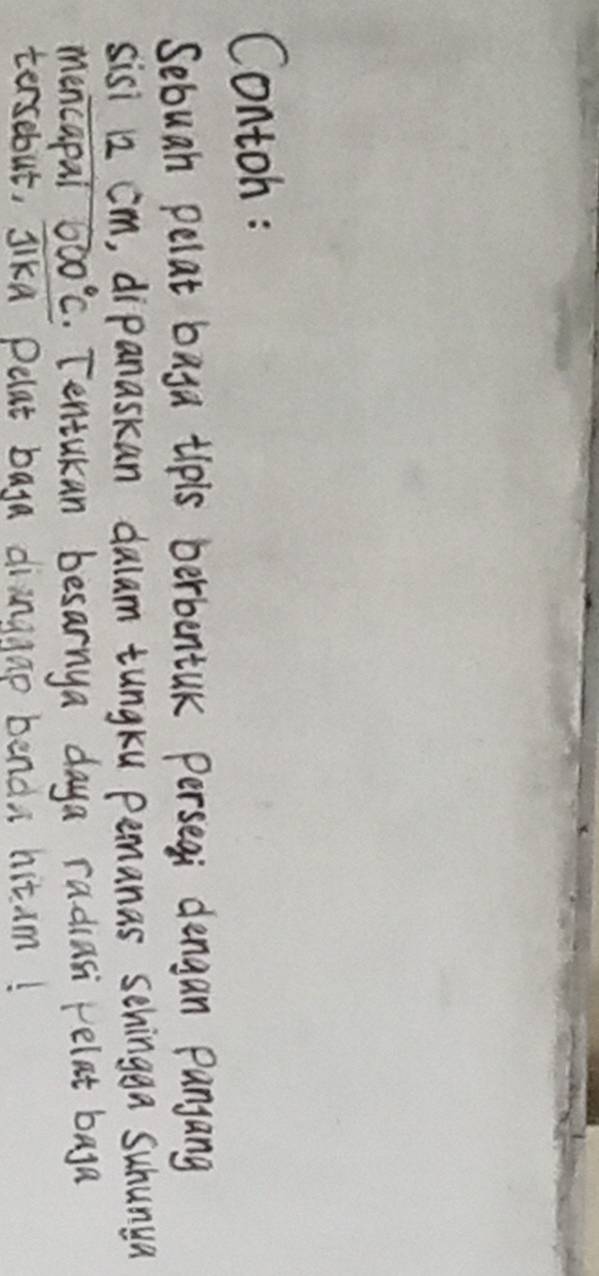 Contoh :
Sebuah pelat baja tipis berbentuk persegi dengan panjang
sisi 12 cm, dipanaskan dalam tungku pemanas sehingga suhunya
mencapai 600°C. Tentukan besarnya daya radiasi pelat baja
tersebut, jika pelat baja dianggap benda hitam !